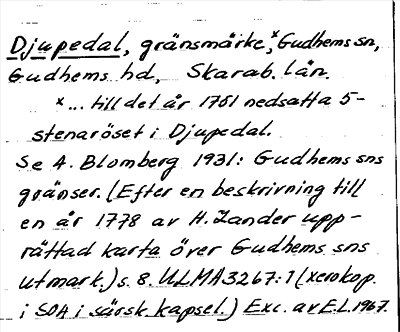 Djupedal, gränsmärke,ˣ Gudhems sn,
Gudhems hd, Skarab. län.
x... till det år 1761 nedsatta 5-
stenaröset i Djupedal.
Se A. Blomberg 1931: Gudhems sns
gränser. (Efter en beskrivning till
en år 1778 av H. Zander upp-
rättad karta över Gudhems sns
utmark.) s. 8. ULMA 3267:1 (xerokop.
i SOA i särsk. kapsel.) Exc. av E.L. 1967.